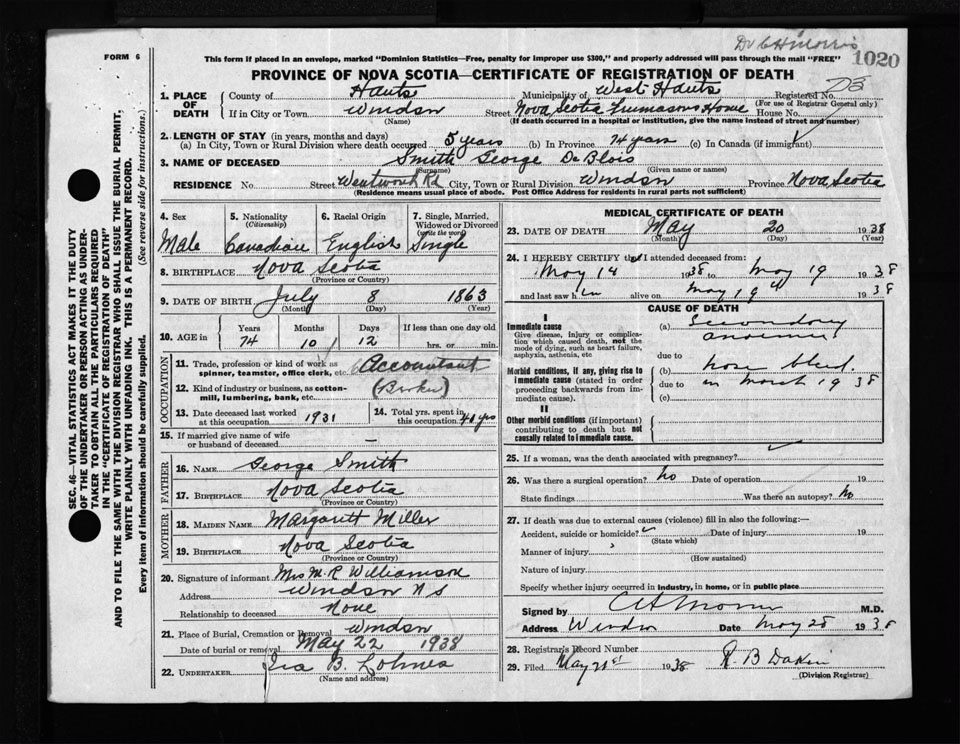 Dr C H Morris
1020
FORM 6
This form if placed in an envelope, marked "Dominion Statistics—Free, penalty for improper use $300," and properly addressed will pass through the mail "FREE"
PROVINCE OF NOVA SCOTIA—CERTIFICATE OF REGISTRATION OF DEATH
1. PLACE OF DEATH County of Hants Municipality of West Hants Registered No.
(For use of Registrar General only)
If in City or Town Windsor Street Nova Scotia Home House No.
(Name) (If death occurred in a hospital or institution, give the name instead of street and number)
2. LENGTH OF STAY (in years, months and days)
(a) In City, Town or Rural Division where death occurred 5 years (b) In Province 74 years (c) In Canada (if immigrant)
3. NAME OF DECEASED Smith George DeBlois
(Surname) (Given name or names)
RESIDENCE No. Street Wentworth Rd City, Town or Rural Division Windsor Province Nova Scotia
(Residence means usual place of abode. Post Office Address for residents in rural parts not sufficient)
SEC. 46—VITAL STATISTICS ACT MAKES IT THE DUTY
OF THE UNDERTAKER OR PERSON ACTING AS UNDER-
TAKER TO OBTAIN ALL THE PARTICULARS REQUIRED
IN THE "CERTIFICATE OF REGISTRATION OF DEATH"
AND TO FILE THE SAME WITH THE DIVISION REGISTRAR WHO SHALL ISSUE THE BURIAL PERMIT.
WRITE PLAINLY WITH UNFADING INK. THIS IS A PERMANENT RECORD.
Every item of information should be carefully supplied. (See reverse side for instructions.)
4. Sex 5. Nationality 6. Racial Origin 7. Single, Married,
(Citizenship) Widowed or Divorced
(write the word)
Male Canadian English Single
8. BIRTHPLACE Nova Scotia
(Province or Country)
9. DATE OF BIRTH July 8 1863
(Month) (Day) (Year)
10. AGE in Years Months Days If less than one day old
74 10 12 hrs. or min.
OCCUPATION
11. Trade, profession or kind of work as
spinner, teamster, office clerk, etc. Accountant
12. Kind of industry or business, as cotton-
mill, lumbering, bank, etc.
13. Date deceased last worked
at this occupation 1931
14. Total yrs. spent in
this occupation 40 yrs
15. If married give name of wife
or husband of deceased —
FATHER
16. NAME George Smith
17. BIRTHPLACE Nova Scotia
(Province or Country)
MOTHER
18. MAIDEN NAME Margarett Miller
19. BIRTHPLACE Nova Scotia
(Province or Country)
20. Signature of informant Mrs M. R Williamson
Address Windsor N S
Relationship to deceased None
21. Place of Burial, Cremation or Removal Windsor
Date of burial or removal May 22 1938
22. UNDERTAKER Ira B. Lohnes
(Name and address)
MEDICAL CERTIFICATE OF DEATH
23. DATE OF DEATH May 20 1938
(Month) (Day) (Year)
24. I HEREBY CERTIFY that I attended deceased from:
May 14 1938 to May 19 1938
and last saw him alive on May 19th 1938
CAUSE OF DEATH
I
Immediate cause (a) Secondary
Give disease, injury or complica- anaemia
tion which caused death, not the
mode of dying, such as heart failure,
asphyxia, asthenia, etc due to
Morbid conditions, if any, giving rise to (b) nose bleed.
immediate cause (stated in order due to in March 1938
proceeding backwards from im-
mediate cause). (c)
II
Other morbid conditions (if important)
contributing to death but not
causally related to immediate cause.
25. If a woman, was the death associated with pregnancy?
26. Was there a surgical operation? No Date of operation 19
State findings Was there an autopsy? No
27. If death was due to external causes (violence) fill in also the following:—
Accident, suicide or homicide? Date of injury 19
(State which)
Manner of injury
(How sustained)
Nature of injury
Specify whether injury occurred in industry, in home, or in public place
Signed by C H Morris M.D.
Address Windsor Date May 28 1938
28. Registrar's Record Number
29. Filed May 21st 1938 R. B Dakin
(Division Registrar)